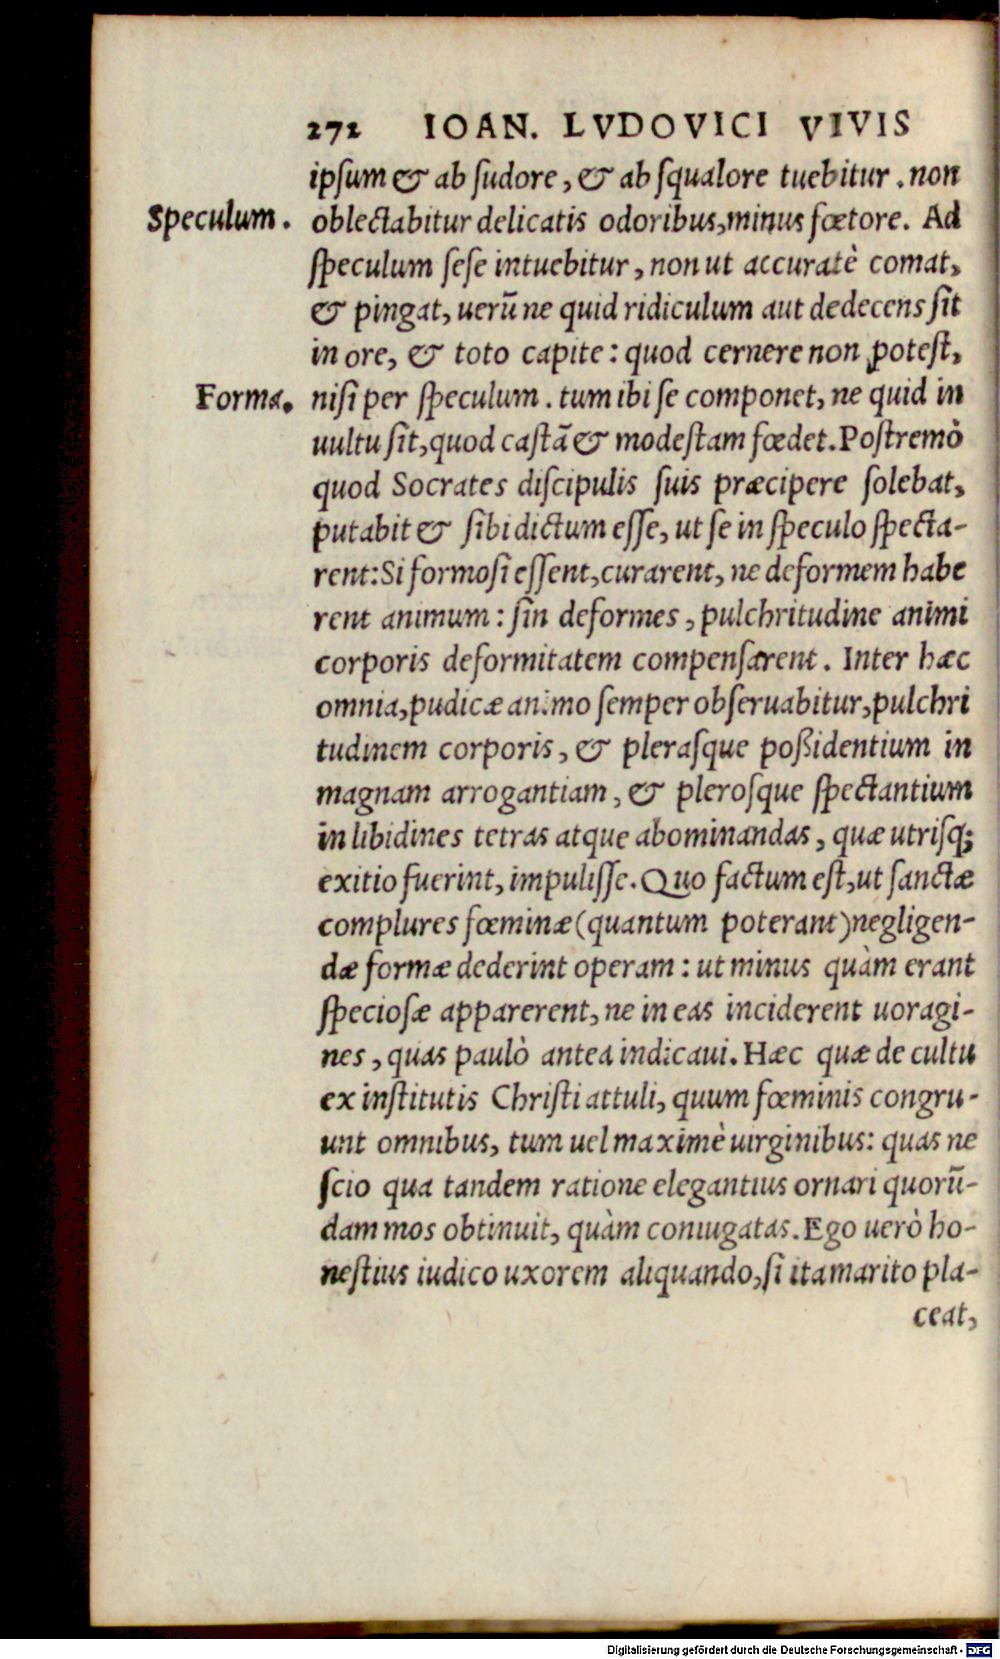 272 IOAN. LVDOVICI VIVIS
ipsum & ab sudore, & ab squalore tuebitur. non
Speculum. oblectabitur delicatis odoribus, minus fœtore. Ad
speculum sese intuebitur, non ut accuratè comat,
& pingat, uerũ ne quid ridiculum aut dedecens sit
in ore, & toto capite: quod cernere non potest,
Forma. nisi per speculum. tum ibi se componet, ne quid in
uultu sit, quod castã & modestam fœdet. Postremò
quod Socrates discipulis suis præcipere solebat,
putabit & sibi dictum esse, ut se in speculo specta-
rent: Si formosi essent, curarent, ne deformem habe
rent animum: sin deformes, pulchritudine animi
corporis deformitatem compensarent. Inter hæc
omnia, pudicæ animo semper obseruabitur, pulchri
tudinem corporis, & plerasque poßidentium in
magnam arrogantiam, & plerosque spectantium
in libidines tetras atque abominandas, quæ utrisq;
exitio fuerint, impulisse. Quo factum est, ut sanctæ
complures fœminæ (quantum poterant) negligen-
dæ formæ dederint operam: ut minus quàm erant
speciosæ apparerent, ne in eas inciderent uoragi-
nes, quas paulò antea indicaui. Hæc quæ de cultu
ex institutis Christi attuli, quum fœminis congru-
unt omnibus, tum uel maximè uirginibus: quas ne
scio qua tandem ratione elegantius ornari quorũ-
dam mos obtinuit, quàm coniugatas. Ego uerò ho-
nestius iudico uxorem aliquando, si ita marito pla-
ceat,
Digitalisierung gefördert durch die Deutsche Forschungsgemeinschaft - DFG